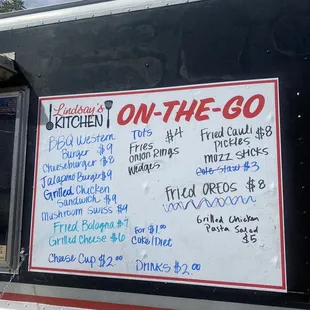 Lindsay's
KITCHEN
ON-THE-GO
BBQ Western
Burger $9
Cheeseburger $8
Jalapeno Burger $9
Grilled Chicken
Sandwich $9
Mushroom Swiss $9
Fried Bologna $7
Grilled Cheese $6
Cheese Cup $2.00
Tots $4
Fries
Onion Rings
Wedges
For $1.00
Coke/Diet
Drinks $2.00
Fried Cauli $8
Pickles
Mozz Sticks
$3
Fried OREOS $8
Grilled Chicken
Pasta Salad
$5